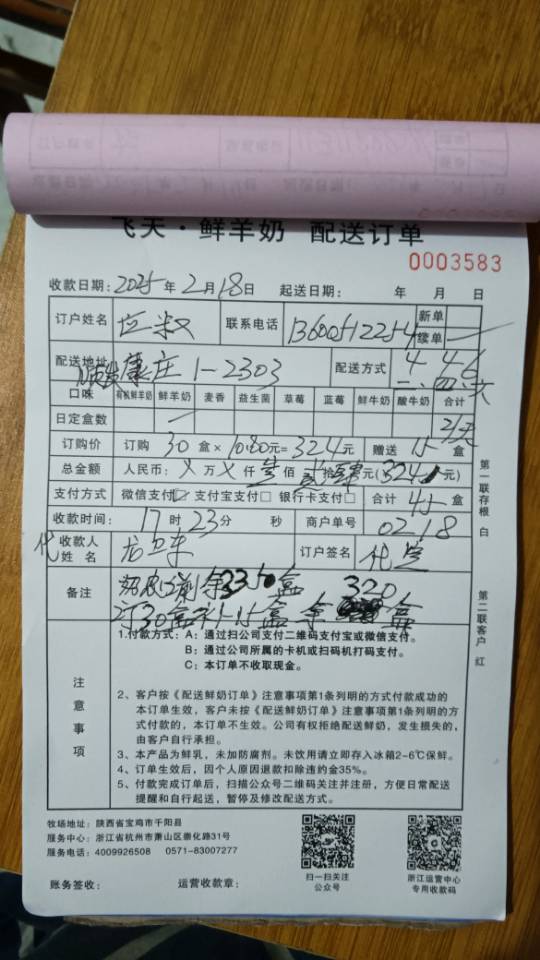 飞天·鲜羊奶 配送订单
0003583
收款日期：2025年2月18日 起送日期： 年 月 日
订户姓名 应叔 联系电话 13600512254 新单
续单
配送地址 康庄1-2303 配送方式 4 4 6
二、四、六
口味 有机鲜羊奶 鲜羊奶 麦香 益生菌 草莓 蓝莓 鲜牛奶 酸牛奶 合计
日定盒数 一 2/天
订购价 订购 30 盒× 10.80 元= 324 元 赠送 15 盒
总金额 人民币： X 万 X 仟 叁 佰 贰 拾 肆 元（324 元）
支付方式 微信支付☑ 支付宝支付□ 银行卡支付□ 合计 45 盒
收款时间： 17 时 23 分 秒 商户单号 0218
代 收款人姓名 龙卫来 订户签名 代签
备注 前余335盒 320
订30盒补15盒 余 盒
注意事项
1.付款方式：A：通过扫公司支付二维码支付宝或微信支付。
B：通过公司所属的卡机或扫码机打码支付。
C：本订单不收取现金。
2、客户按《配送鲜奶订单》注意事项第1条列明的方式付款成功的
本订单生效，客户未按《配送鲜奶订单》注意事项第1条列明的方
式付款的，本订单不生效。公司有权拒绝配送鲜奶，发生损失的，
由客户自行承担。
3、本产品为鲜乳，未加防腐剂。未饮用请立即存入冰箱2-6℃保鲜。
4、订单生效后，因个人原因退款扣除违约金35%。
5、付款完成订单后，扫描公众号二维码关注并注册，方便日常配送
提醒和自行起送，暂停及修改配送方式。
第一联存根 白
第二联客户 红
牧场地址：陕西省宝鸡市千阳县
服务中心：浙江省杭州市萧山区崇化路31号
服务电话：4009926508 0571-83007277
扫一扫关注
公众号
浙江运营中心
专用收款码
账务签收： 运营收款章：